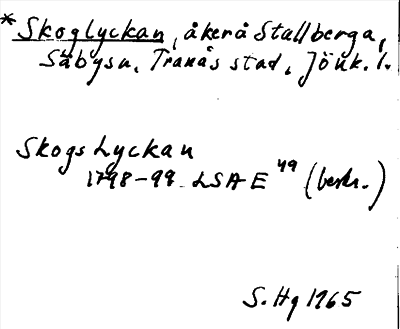 *Skoglyckan, åkerå Stallberga,
Säbysn, Tranås stad, Jönk. l.
Skogs Lyckan
1798-99 LSA E 49 (beskr.)
S. Hg 1965